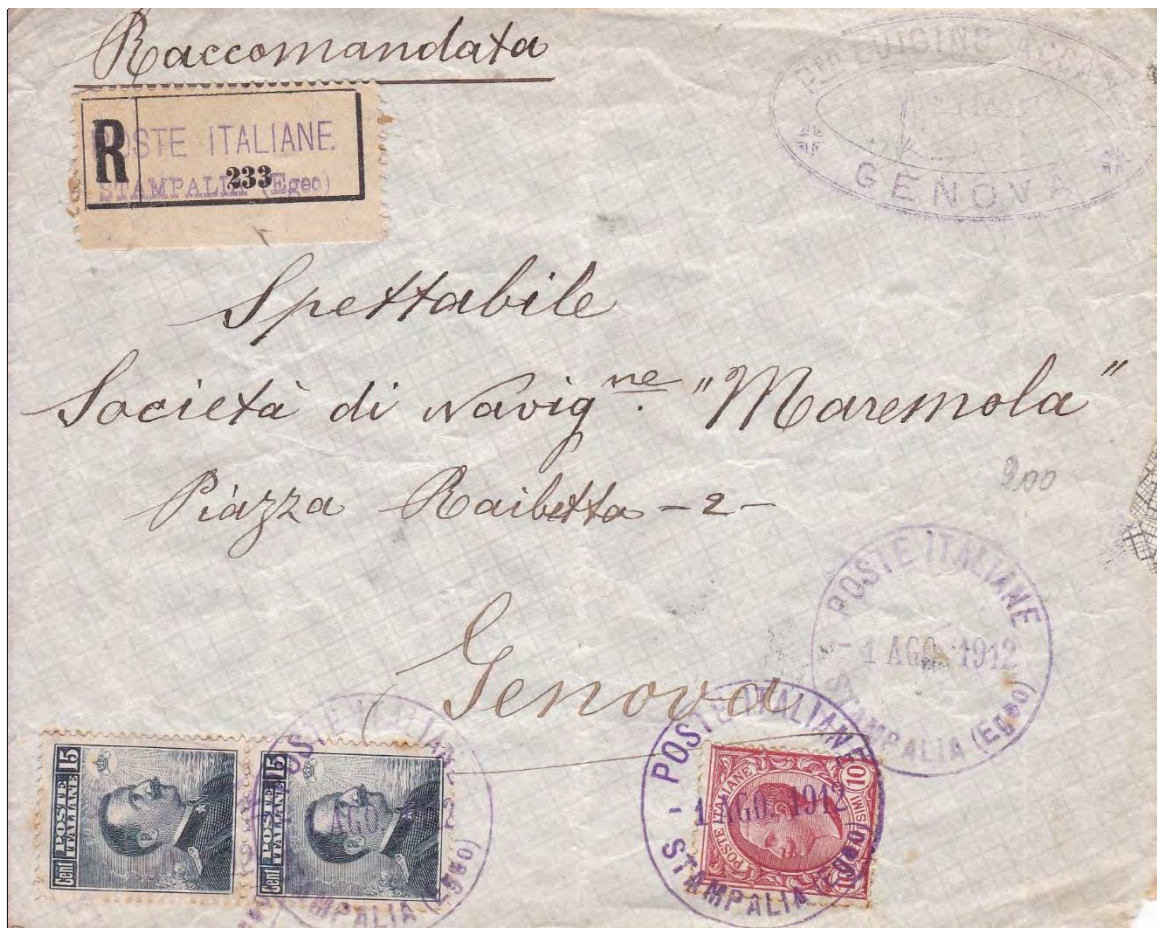 Raccomandata
R
POSTE ITALIANE.
233
STAMPALIA (Egeo)
LUIGINO
GENOVA
Spettabile
Società di Navig.ne "Maremola"
Piazza Raibetta - 2 -
Genova
200
POSTE ITALIANE
1 AGO. 1912
STAMPALIA (Egeo)
POSTE ITALIANE
1 AGO. 1912
STAMPALIA (Egeo)
POSTE ITALIANE
AGO. 12
MPALIA (Egeo)
Cent POSTE ITALIANE 15
Cent POSTE ITALIANE 15
POSTE ITALIANE
10